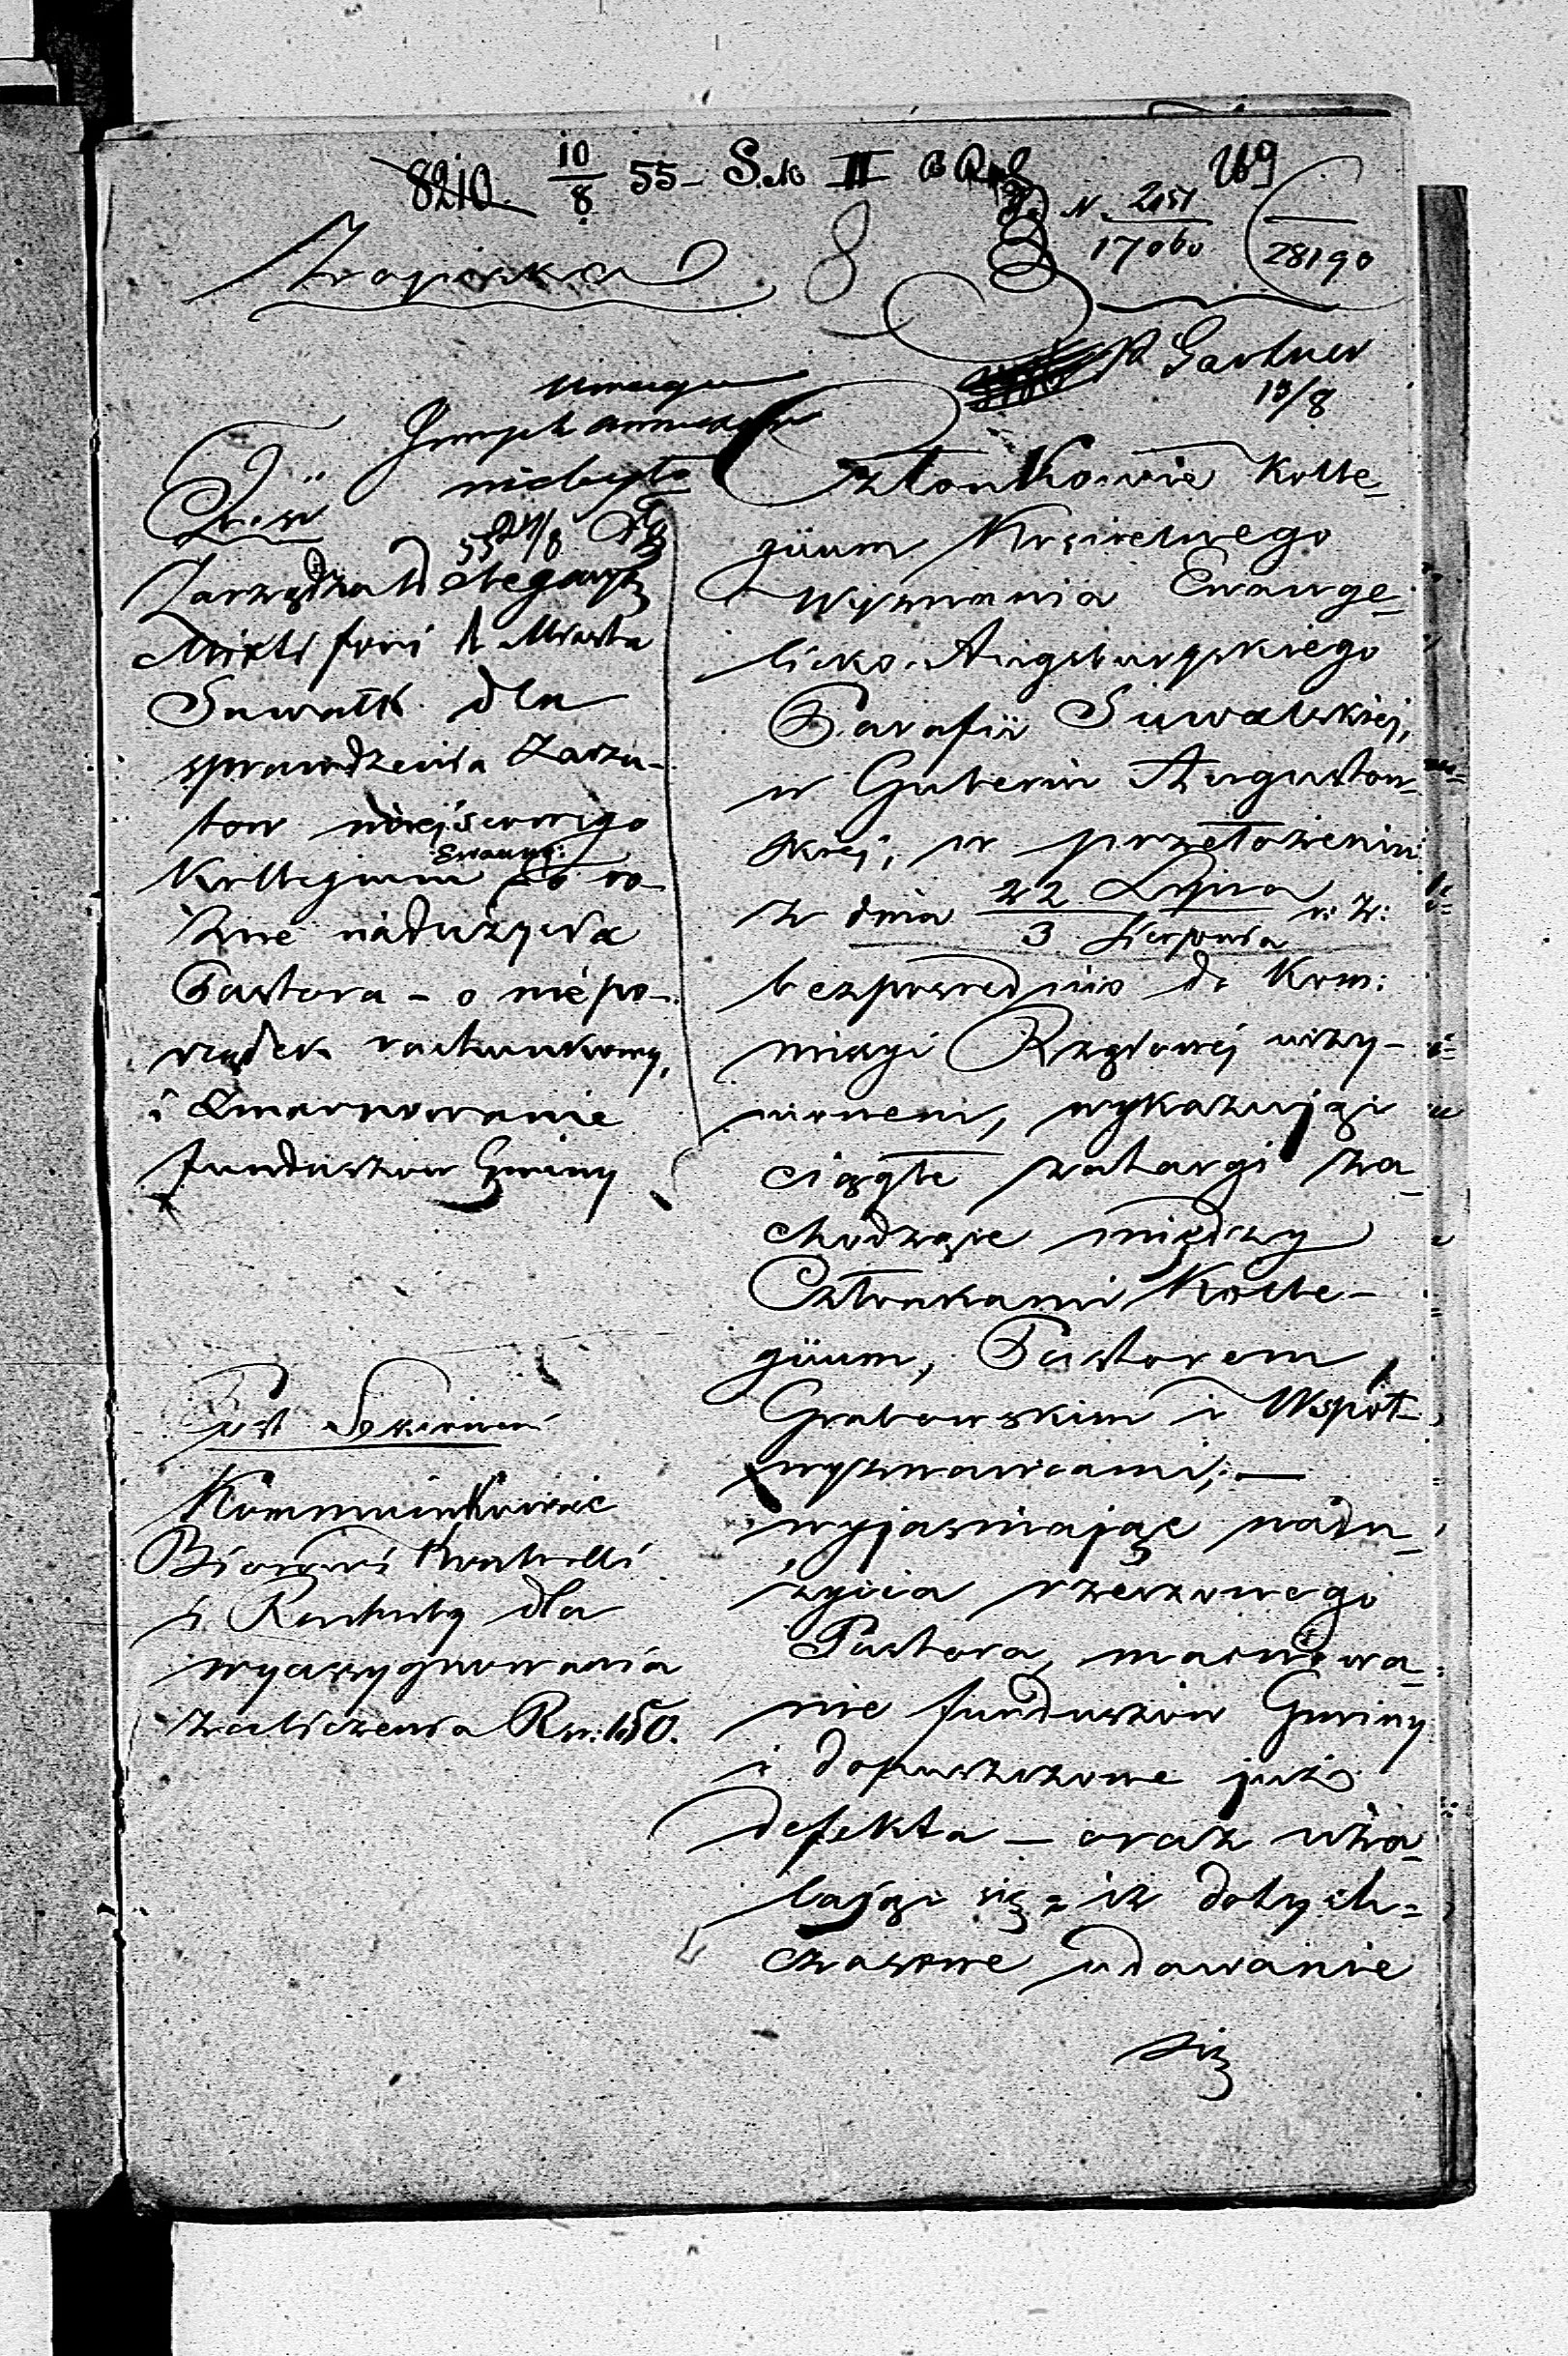 8210. 10/8 55 - S. II 169
N. 2151/17060 28190
Zapiska 8
Gartner
13/8
niebyło
Zarządzał
Miasta
Suwałk dla
sprawdzenia Zarzu-
tow miejscowego
Kollegium Ewang: o ro-
żne nadużycia
Pastora - o niepo-
rządek rachunkowy,
i Zmarnowanie
funduszów Gminy
Kommunikować
Kontrolli
i Rachuby dla
wyassygnowania
zaliczenia Rsr. 150.
Członkowie Kolle-
giium Kościelnego
Wyznania Ewange-
licko-Augsburgskiego
Parafii Suwalskiej,
w Gubernii Augustow-
skiej, w przełożeniu
z dnia 22 Lipca / 3 Sierpnia r: z:
bezpośrednio do Kom:
missyi Rządowej uczy-
nionem, wykazując
ciągłe zatargi za-
chodzące między
Członkami Kolle-
giium, Pastorem
Grabowskim i Współ-
wyznawcami; —
wyjaśniając nadu-
życia rzeczonego
Pastora, marnowa-
nie funduszów Gminy
i dopuszczone już
defekta — oraz uża-
lając się, iż dotych-
czasowe udawanie
się